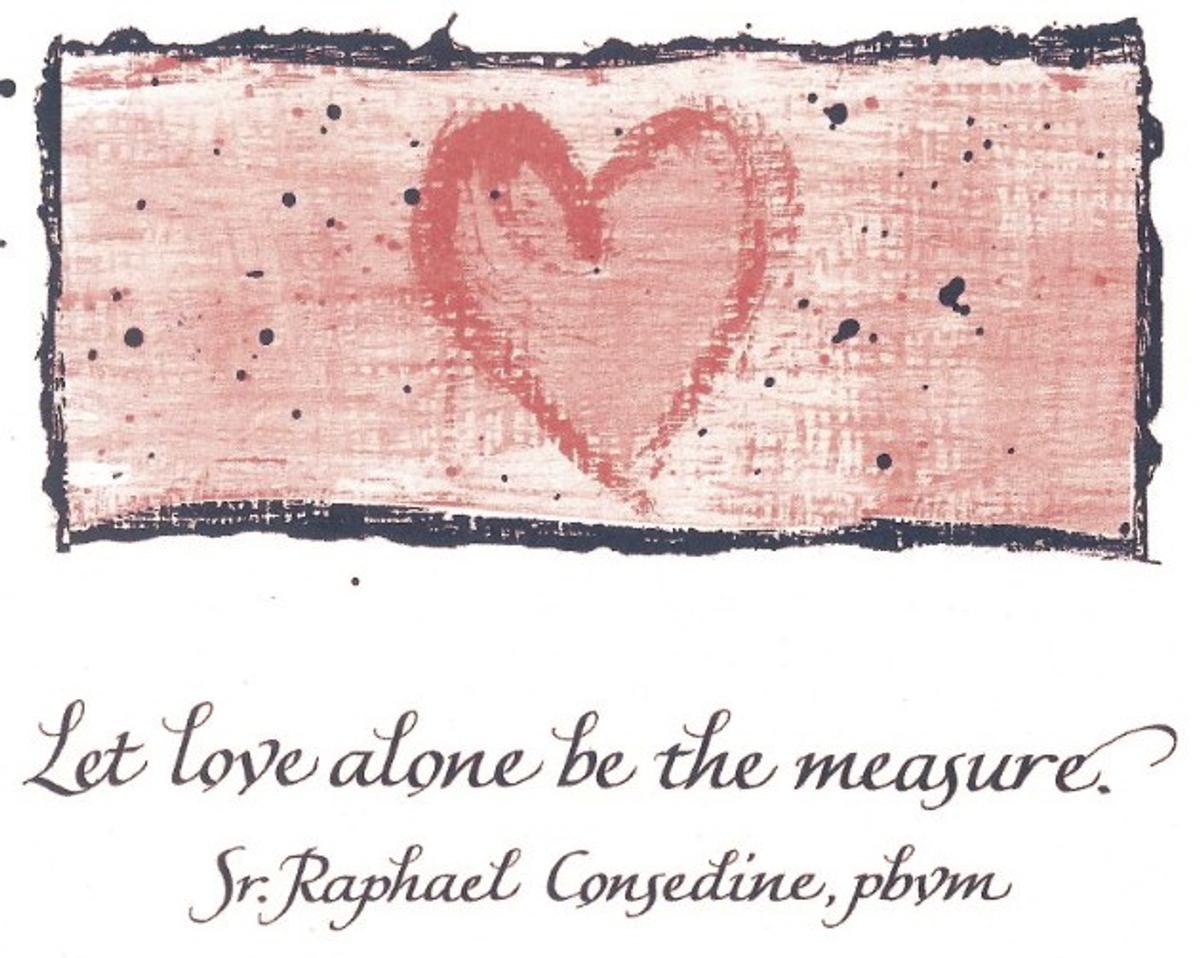 Let love alone be the measure.
Sr. Raphael Consedine, pbvm